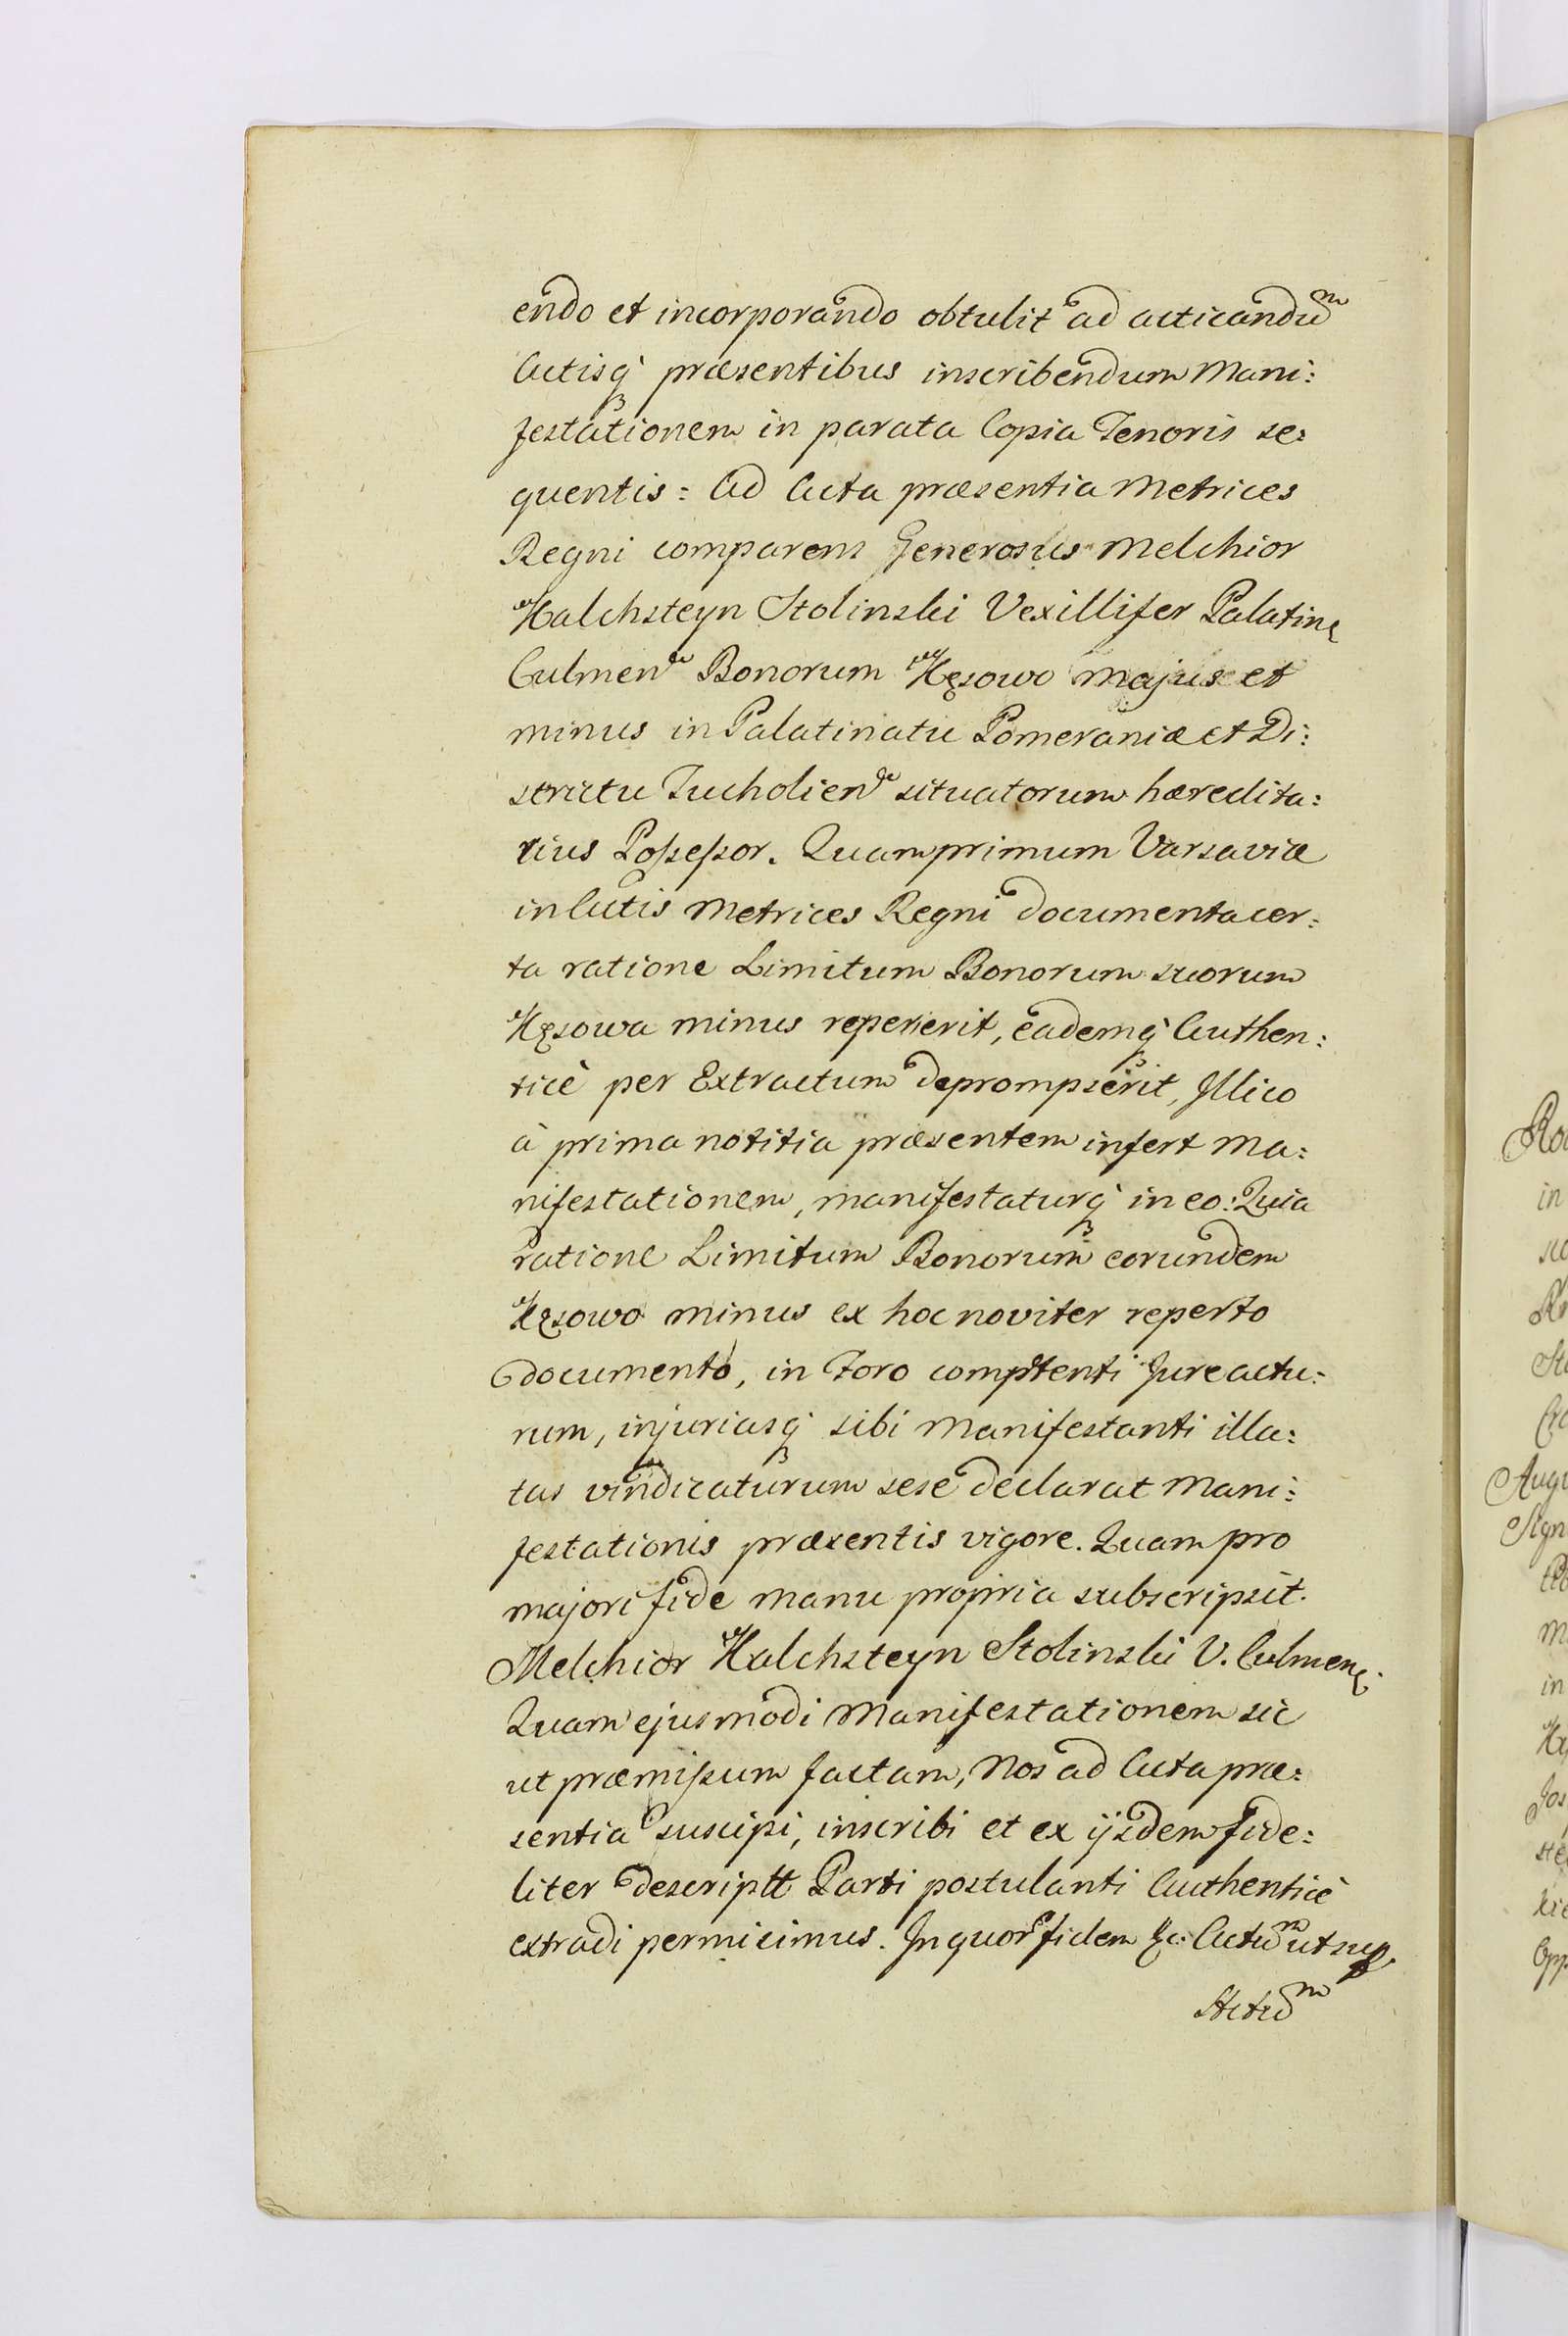 endo et incorporando obtulit ad acticandũᵐ
Actisq́ꝫ præsentibus inscribendum Mani:
festationem in parata Copia Tenoris se:
quentis: Ad Acta præsentia Metrices
Regni comparens Generosus Melchior
Kalchsteyn Stolinski Vexillifer Palatinę
Culmenˢᵉ Bonorum Kęsowo majus et
minus in Palatinatu Pomeraniæ et Di:
strictu Tucholienˢᵉ situatorum hæredita:
rius Poſseſsor. Quamprimum Varsaviæ
in Actis Metrices Regni documenta cer:
ta ratione Limitum Bonorum suorum
Kęsowa minus repererit, eademq́ꝫ Authen:
ticè per Extractum deprompserit, Illico
à prima notitia præsentem infert Ma:
nifestationem, manifestaturq́ꝫ in eo: Quia
ratione Limitum Bonorum eorundem
Kęsowo minus ex hoc noviter reperto
documento, in Foro comptenti Jure actu:
rum, injuriasq́ꝫ sibi Manifestanti illa:
tas vindicaturum sese declarat Mani:
festationis præsentis vigore. Quam pro
majori fide manu propria subscripsit.
Melchior Kalchsteyn Stolinski V. Culmenę.
Quam ejusmodi Manifestationem sic
ut præmiſsum factam, Nos ad Acta præ:
sentia suscipi, inscribi et ex ijsdem fide:
liter descriptt Parti postulanti Authenticè
extradi permisimus. In quorᵉ fidem &c: Actũᵐ ut sup.
Actũᵐ
Rog
in
Kr
Sta
Augu
Sign
in
Jos
ste
Opp